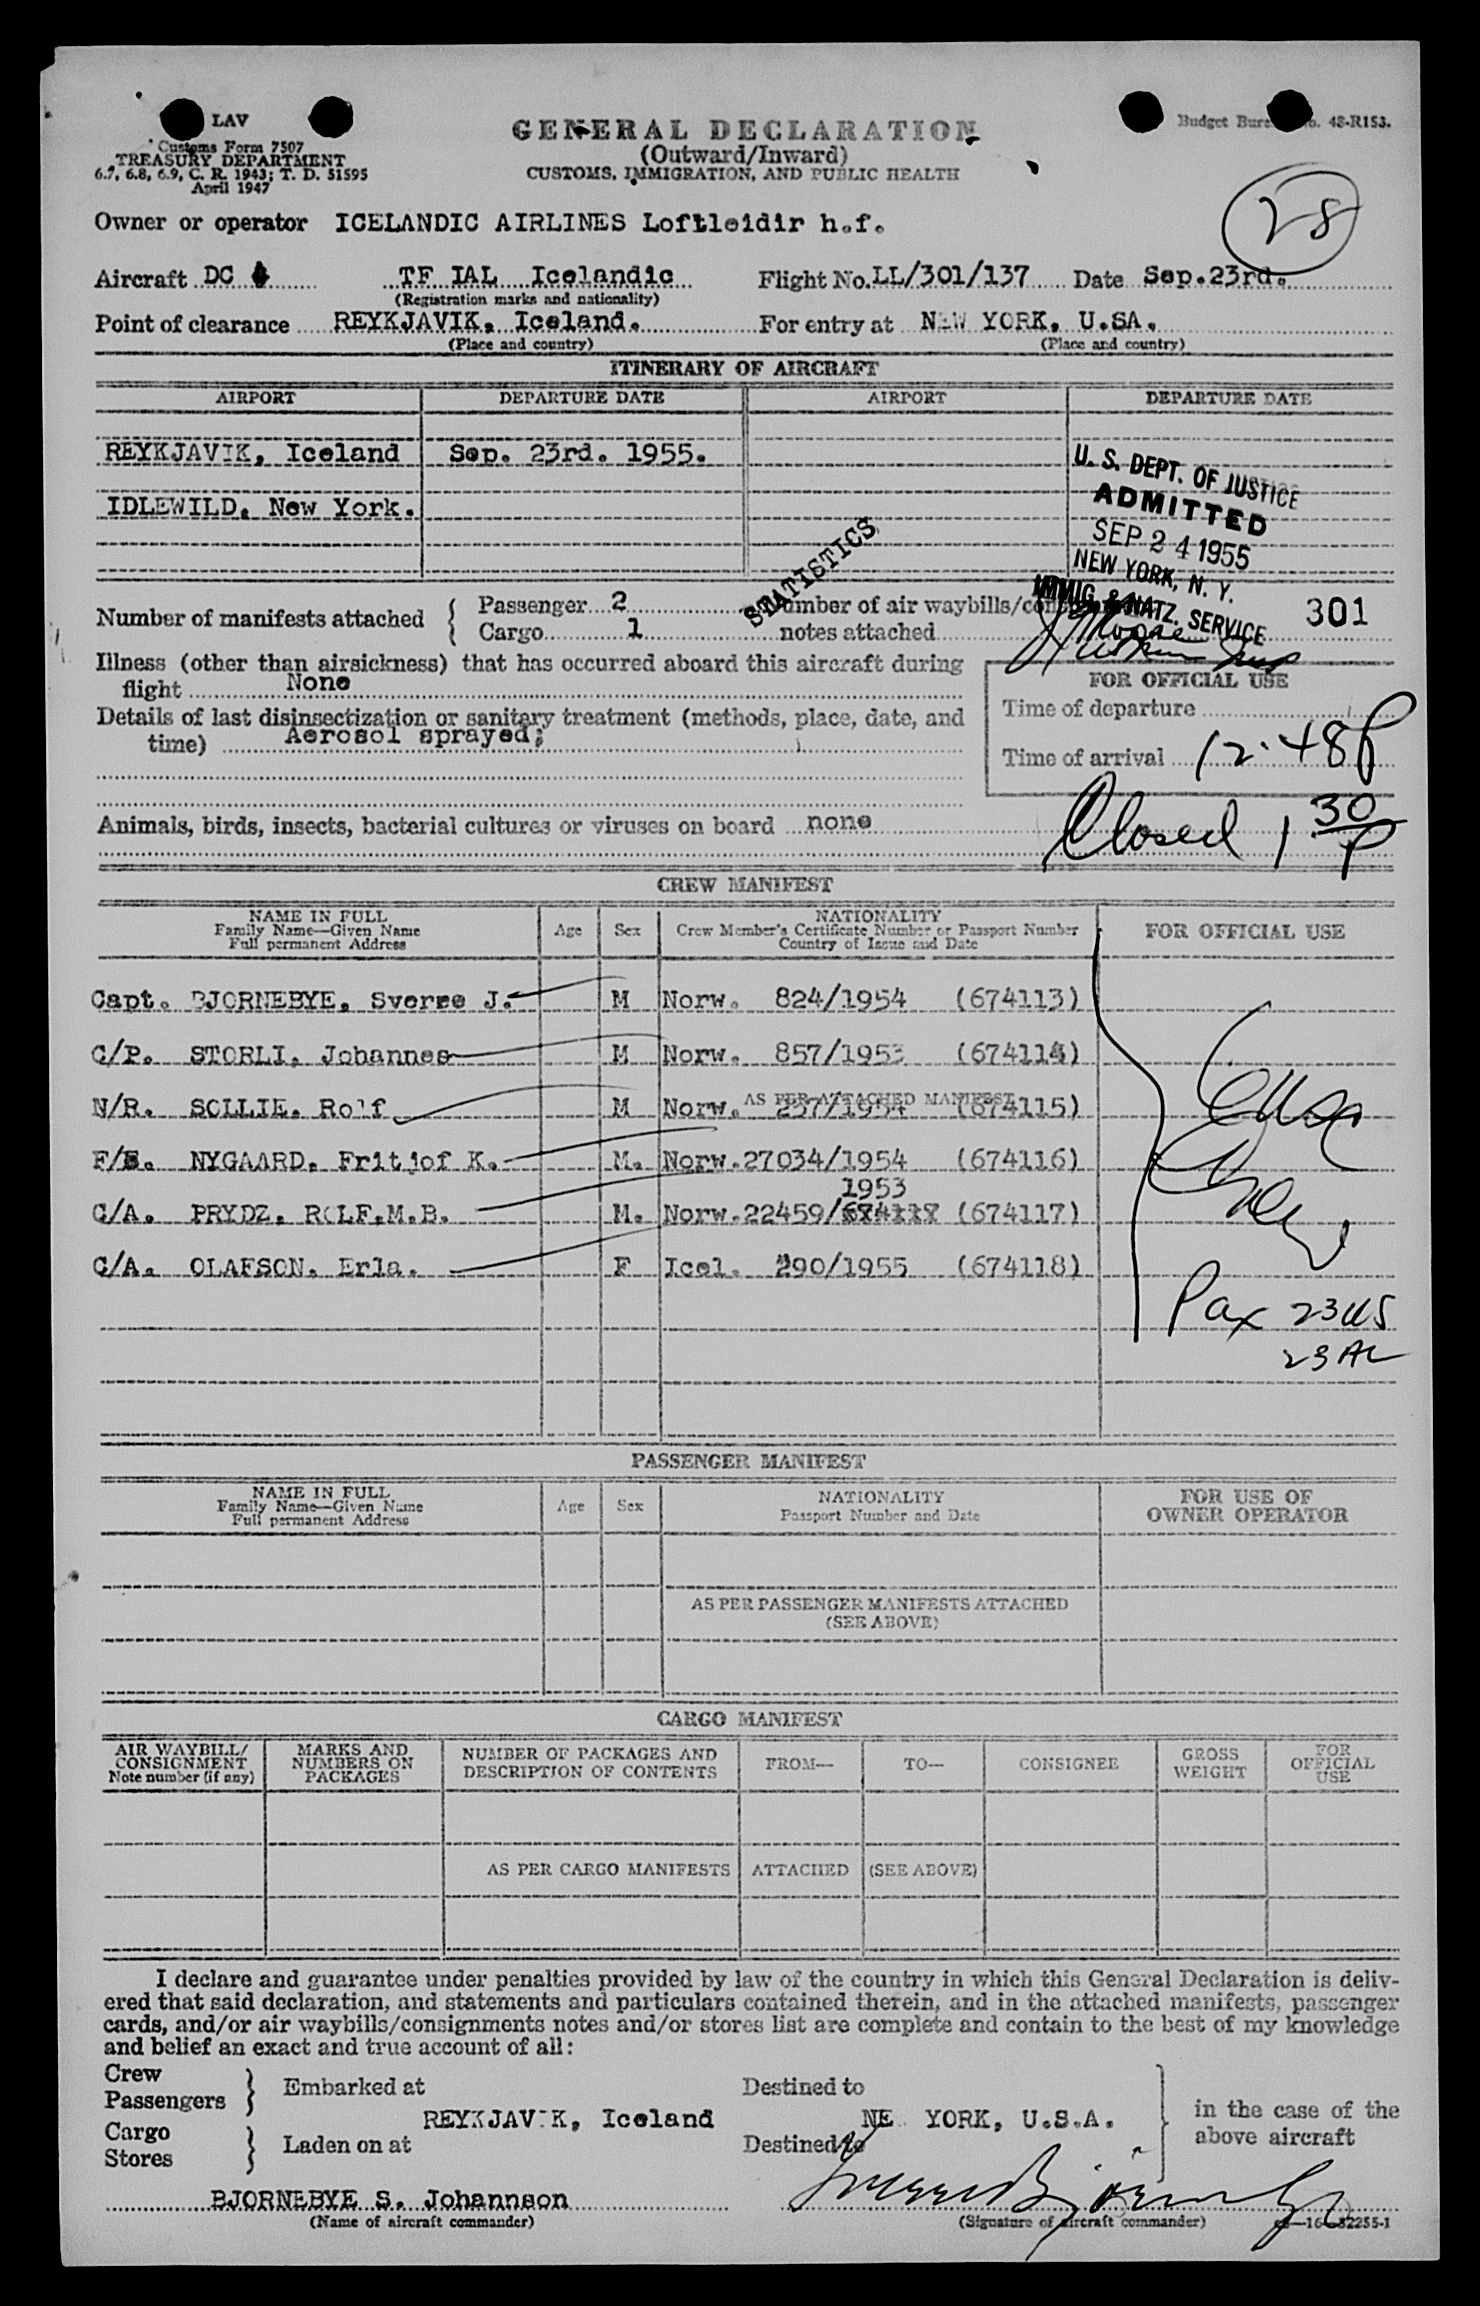 LAV
Customs Form 7507
TREASURY DEPARTMENT
6.7, 6.8, 6.9, C. R. 1943; T. D. 51595
April 1947
GENERAL DECLARATION
(Outward/Inward)
CUSTOMS, IMMIGRATION, AND PUBLIC HEALTH
Budget Bureau No. 48-R153.
28
Owner or operator ICELANDIC AIRLINES Loftleidir h.f.
Aircraft DC 4 TF IAL Icelandic Flight No. LL/301/137 Date Sep.23rd.
(Registration marks and nationality)
Point of clearance REYKJAVIK, Iceland. For entry at NEW YORK, U.SA.
(Place and country) (Place and country)
ITINERARY OF AIRCRAFT
AIRPORT DEPARTURE DATE AIRPORT DEPARTURE DATE
REYKJAVIK, Iceland Sep. 23rd. 1955.
IDLEWILD, New York.
U. S. DEPT. OF JUSTICE
ADMITTED
SEP 24 1955
NEW YORK, N. Y.
IMMIG. & NATZ. SERVICE
STATISTICS
Number of manifests attached { Passenger 2 Number of air waybills/
Cargo 1 notes attached 301
Illness (other than airsickness) that has occurred aboard this aircraft during
flight None
FOR OFFICIAL USE
Details of last disinsectization or sanitary treatment (methods, place, date, and
time) Aerosol sprayed;
Time of departure
Time of arrival 12.48P
Closed 1 30/P
Animals, birds, insects, bacterial cultures or viruses on board none
CREW MANIFEST
NAME IN FULL
Family Name—Given Name
Full permanent Address
Age
Sex
NATIONALITY
Crew Member's Certificate Number or Passport Number
Country of Issue and Date
FOR OFFICIAL USE
Capt. BJORNEBYE, Sverre J. M Norw. 824/1954 (674113)
C/P. STORLI, Johannes M Norw. 857/1953 (674114)
AS PER ATTACHED MANIFEST
N/R. SOLLIE, Rolf M Norw. 257/1954 (674115)
F/E. NYGAARD, Fritjof K. M. Norw.27034/1954 (674116)
1953
C/A. PRYDZ, ROLF.M.B. M. Norw.22459/ (674117)
C/A. OLAFSON, Erla. F Icel. 290/1955 (674118)
Pax 23 US
23 AL
PASSENGER MANIFEST
NAME IN FULL
Family Name—Given Name
Full permanent Address
Age
Sex
NATIONALITY
Passport Number and Date
FOR USE OF
OWNER OPERATOR
AS PER PASSENGER MANIFESTS ATTACHED
(SEE ABOVE)
CARGO MANIFEST
AIR WAYBILL/
CONSIGNMENT
Note number (if any)
MARKS AND
NUMBERS ON
PACKAGES
NUMBER OF PACKAGES AND
DESCRIPTION OF CONTENTS
FROM—
TO—
CONSIGNEE
GROSS
WEIGHT
FOR
OFFICIAL
USE
AS PER CARGO MANIFESTS ATTACHED (SEE ABOVE)
I declare and guarantee under penalties provided by law of the country in which this General Declaration is deliv-
ered that said declaration, and statements and particulars contained therein, and in the attached manifests, passenger
cards, and/or air waybills/consignments notes and/or stores list are complete and contain to the best of my knowledge
and belief an exact and true account of all:
Crew
Passengers } Embarked at Destined to
REYKJAVIK, Iceland NE YORK, U.S.A. } in the case of the
above aircraft
Cargo
Stores } Laden on at Destined to
BJORNEBYE S. Johannson
(Name of aircraft commander) (Signature of aircraft commander) 16—52255-1